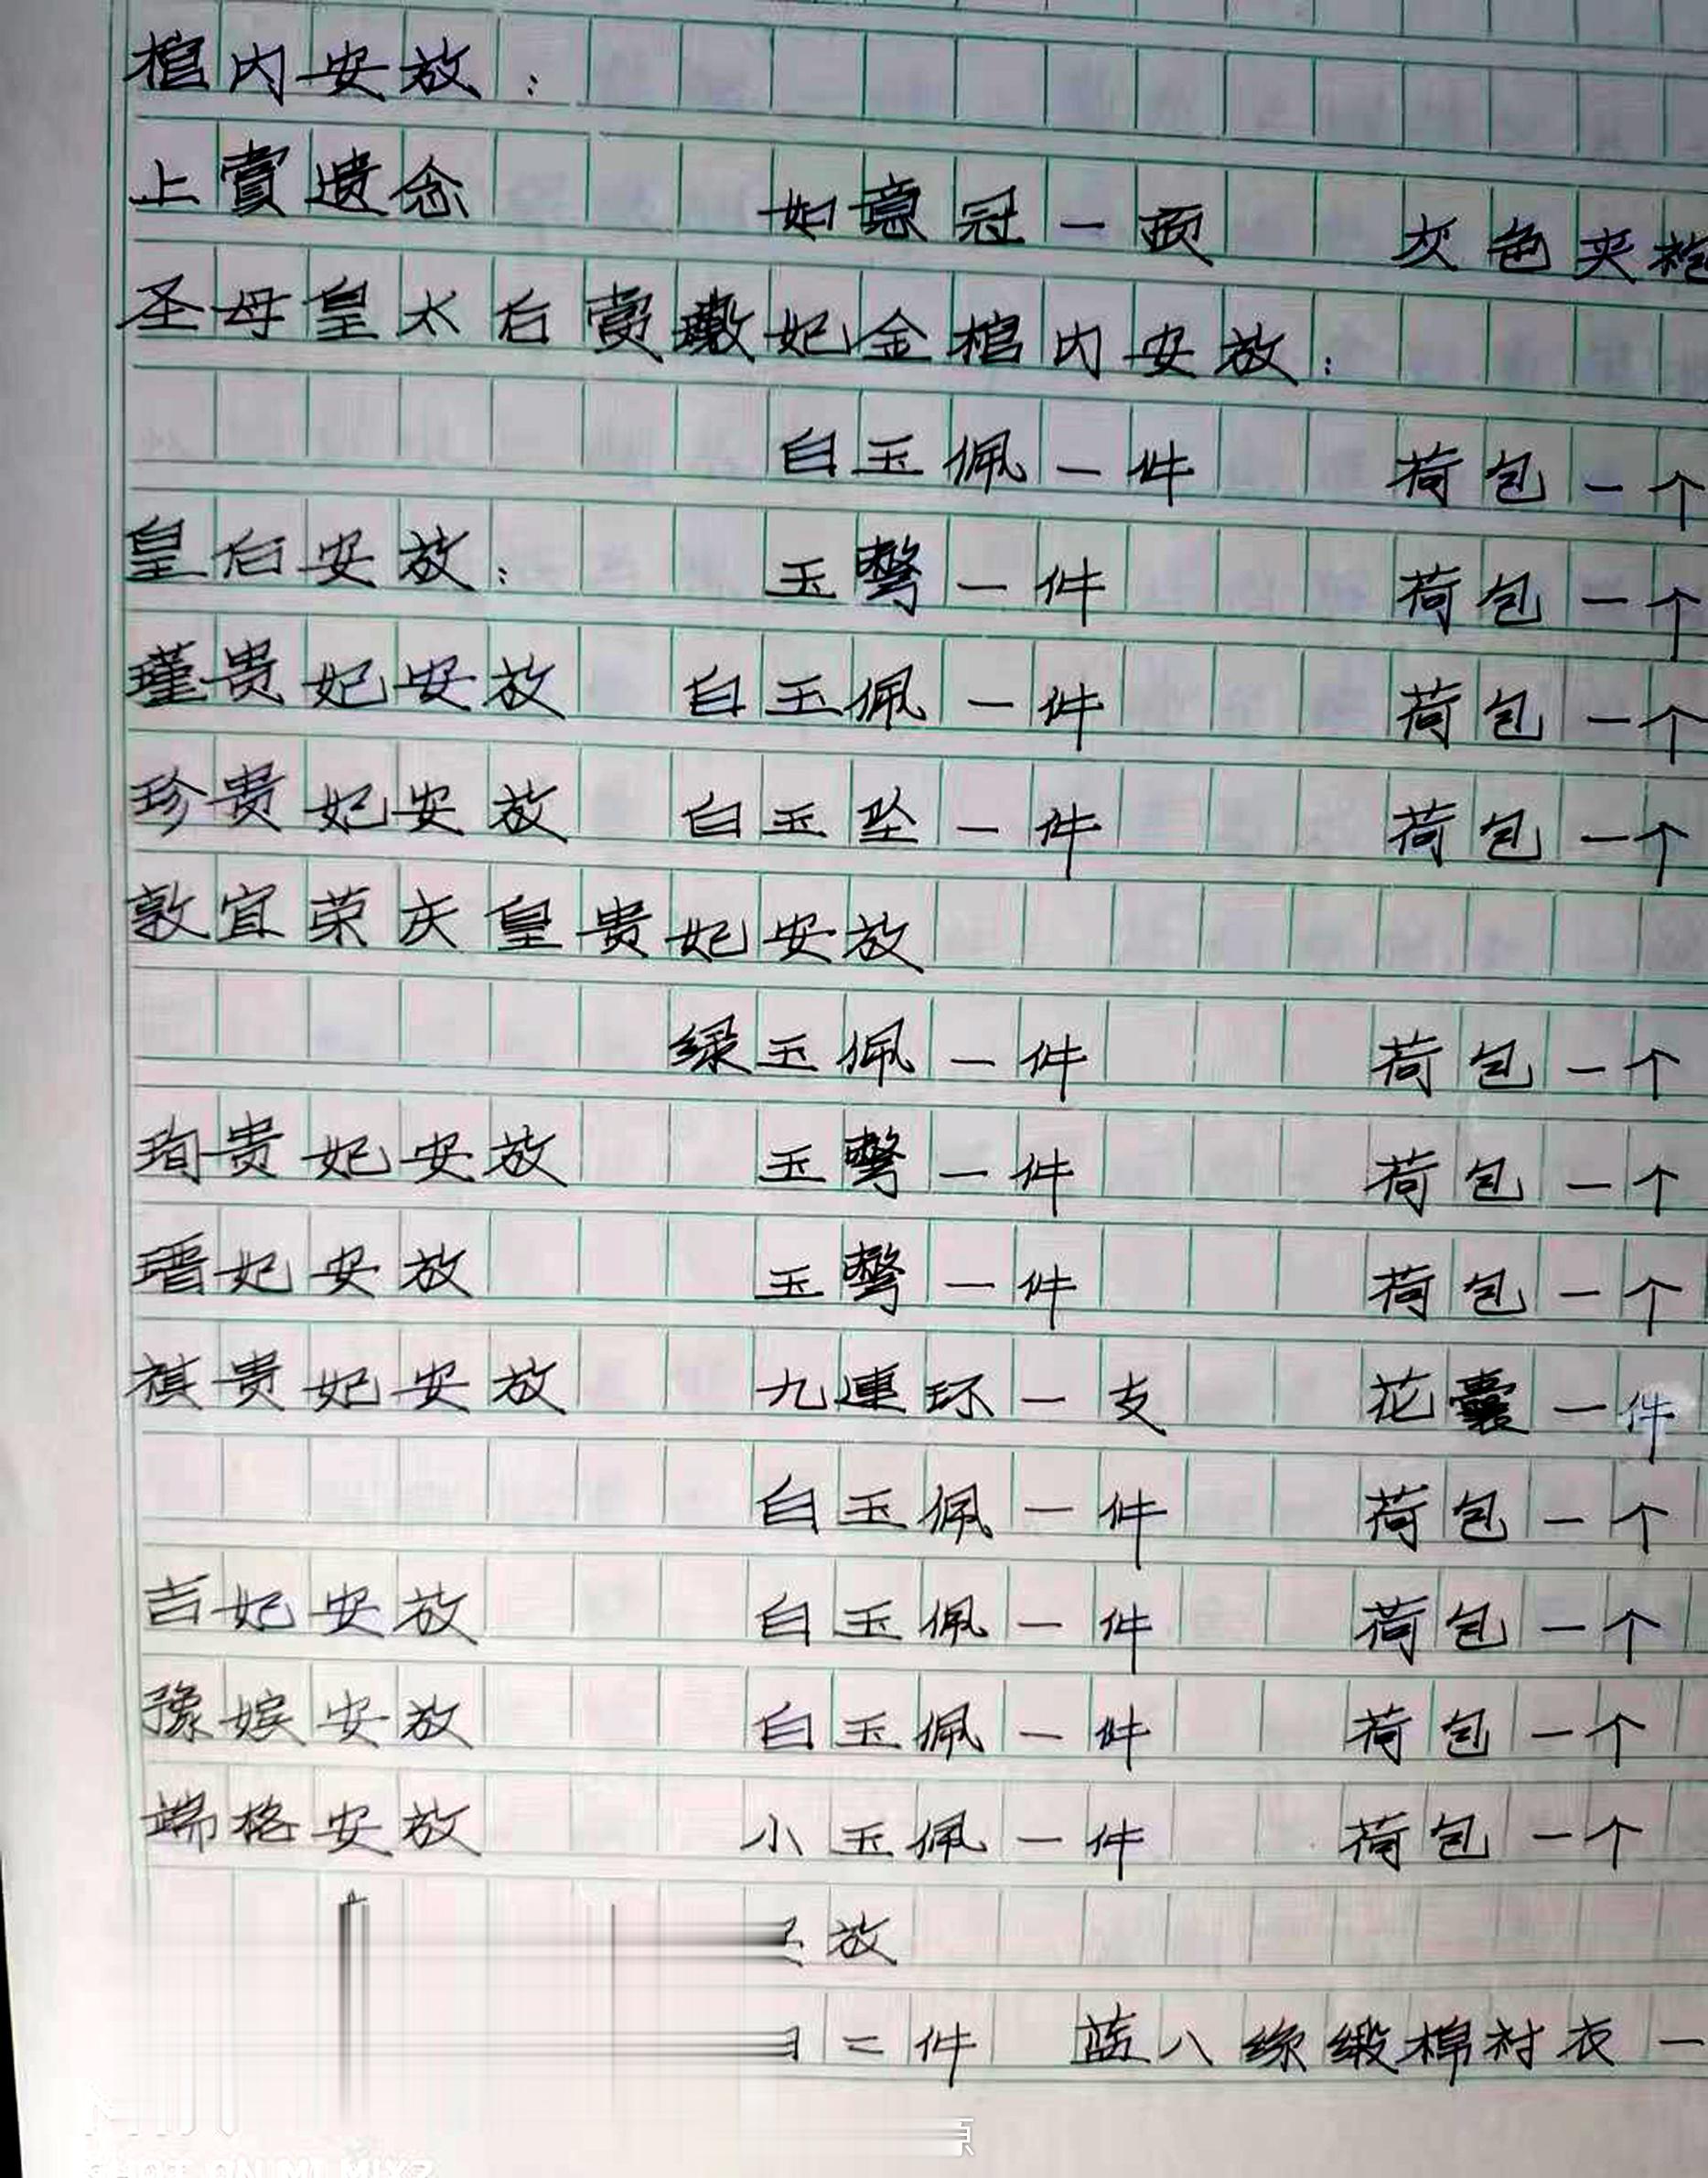 棺内安放：
上賞遗念 如意冠一顶 灰色夹袍
圣母皇太后賞妃金棺内安放：
白玉佩一件 荷包一个
皇后安放： 玉一件 荷包一个
瑾贵妃安放 白玉佩一件 荷包一个
珍贵妃安放 白玉坠一件 荷包一个
敦宜荣庆皇贵妃安放
绿玉佩一件 荷包一个
珣贵妃安放 玉一件 荷包一个
瑨妃安放 玉一件 荷包一个
祺贵妃安放 九連环一支 花囊一件
白玉佩一件 荷包一个
吉妃安放 白玉佩一件 荷包一个
豫嫔安放 白玉佩一件 荷包一个
端格安放 小玉佩一件 荷包一个
放
二件 蓝八缎棉衬衣一